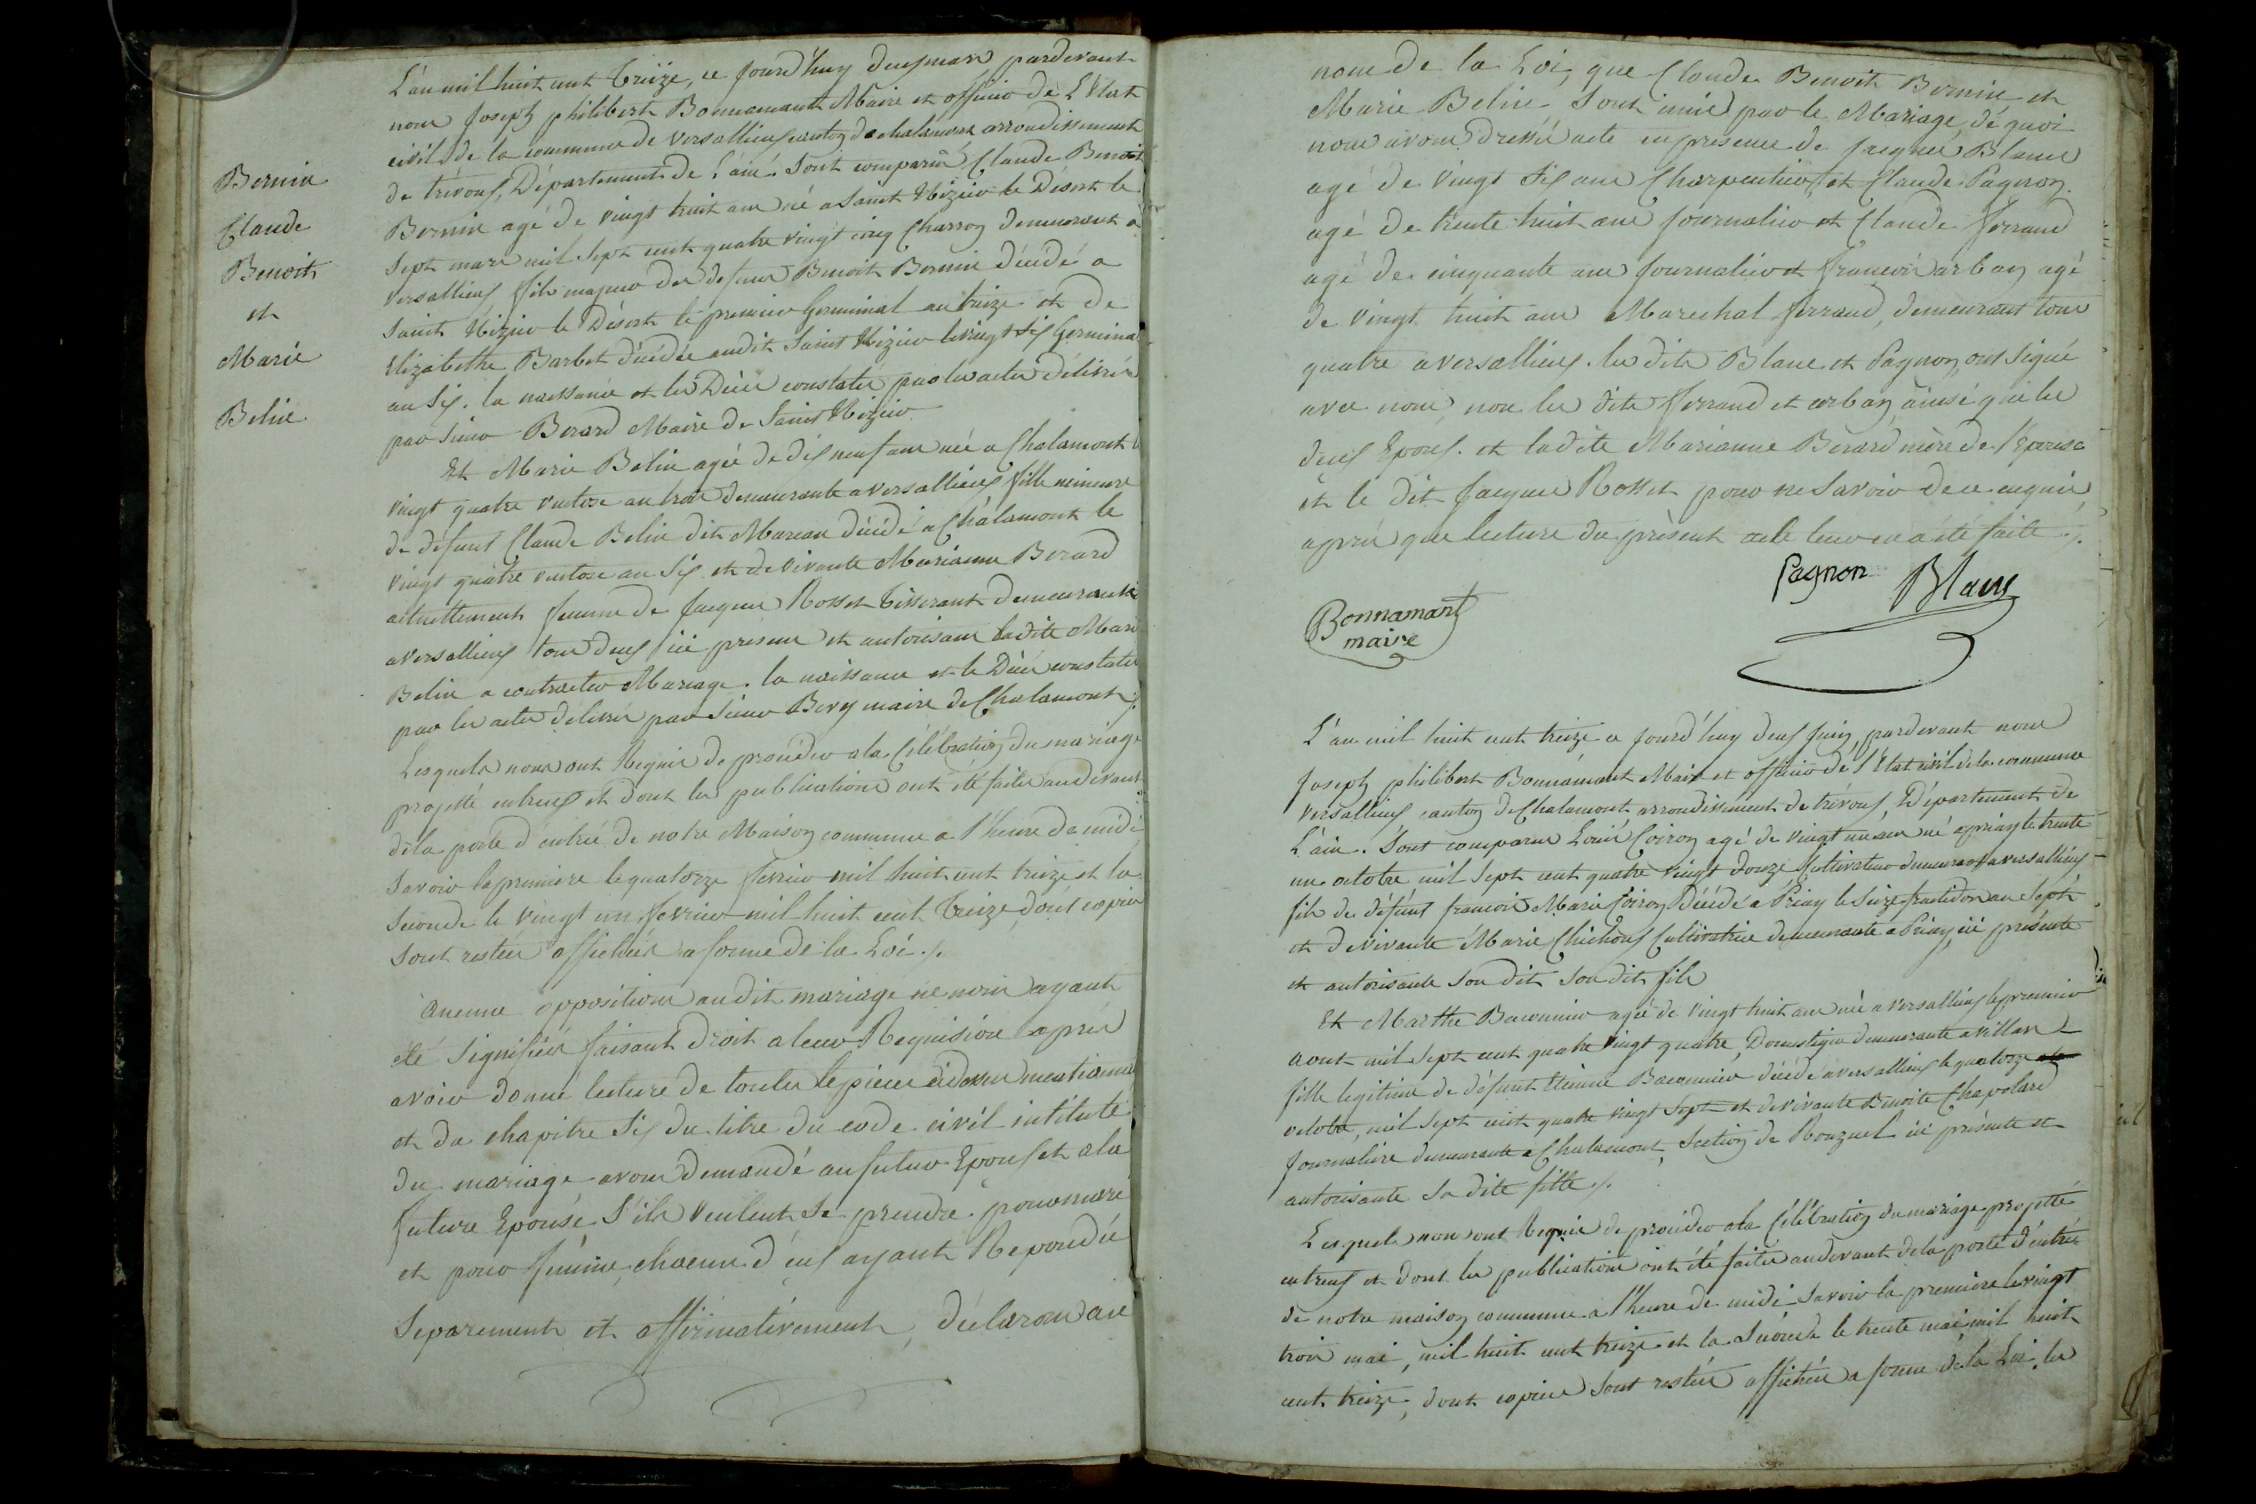 Bernin
Claude
Benoit
et
Marie
Belin
L'an mil huit cent treize, ce jourd'huy deux mars pardevant
nous Joseph philibert Bonnamant Maire et officier de L'Etat
civil de la commune de versallieux canton de chalamont arrondissement
de trévoux, Département de L'ain. Sont comparus Claude Benoit
Bernin agé de vingt huit ans né a Saint Nizier le Désert le
Sept mars mil Sept cent quatre vingt cinq Charron demeurant a
versallieux fils majeur des defunts Benoit Bernin décédé a
Saint Nizier le Désert le premier Germinal an treize et de
Elizabethe Barbet décédée audit Saint Nizier le vingt six Germinal
an Six. la naissance et les Décès constatés par les actes délivrés
par Sieur Berard Maire de Saint Nizier
Et Marie Belin agée de dix neuf ans née a Chalamont le
vingt quatre ventose an trois demeurante a versallieux fille mineure
de défunt Claude Belin dit Moreau décédé a Chalamont le
vingt quatre ventose an Six et de vivante Marianne Berard
actuellement femme de Jacques Rosset tisserant demeurants
a versallieux tous deux ici présens et autorisans ladite Marie
Belin a contracter Mariage. la naissance et le Décès constatés
par les actes délivrés par Sieur Bery maire de Chalamont ./.
Lesquels nous ont Requis de procéder a la Célébration du mariage
projetté entreux et dont les publications ont été faites audevant
de la porte d'entrée de notre Maison commune a l'heure de midi
Savoir la premiere le quatorze fevrier mil huit cent treize et la
Seconde le vingt un fevrier mil huit cent treize, dont copies
Sont restées affichées a forme de la Loi ./.
Aucune oppositions audit mariage ne nous ayant
été Signifiées faisant droit a leur Requisition après
avoir donné lecture de toutes les pièces ci dessus mentionnées
et du chapitre Six du titre du code civil intitulé
du mariage avons demandé au futur Epoux et a la
future Epouse S'ils veulent Se prendre pour mari
et pour femme, chacun d'eux ayant Repondu
Separement et affirmativement, déclarons au
nom de la Loi, que Claude Benoit Bernin et
Marie Belin Sont unis par le Mariage, de quoi
nous avons dressé acte en présence de Jacques Blanc
agé de vingt Six ans Charpentier, et Claude Pagnon
agé de trente huit ans Journalier et Claude ferrand
agé de cinquante ans Journalier et francois arban agé
de vingt huit ans Marechal ferrand, demeurant tous
quatre a versallieux. les dits Blanc et Pagnon ont Signé
avec nous, non les dits ferrand et arban, ainsi que les
deux Epoux. et ladite Marianne Berard mère de l'Epouse
et le dit Jacques Rosset pour ne Savoir de ce enquis
après que lecture du présent acte leur en a été faite ./.
Pagnon Blanc
Bonnamant
maire
L'an mil huit cent treize ce jourd'huy deux juin, pardevant nous
Joseph philibert Bonnamant Maire et officier de l'Etat civil de la commune
versallieux canton de Chalamont, arrondissement de trévoux, Département de
L'ain. Sont comparus Louis Coiron agé de vingt un ans né a priay le trente
un octobre mil Sept cent quatre vingt douze Cultivateur demeurant a versallieux
fils de défunt francois Marie Coiron Décédé a Priay le Seize fructidor an Sept
et de vivante Marie Chichoux Cultivatrice demeurante a Priay, ici présente
et autorisante Son dit Son dit fils
Et Marthe Baconnier agée de vingt huit ans née a versallieux le premier
aout mil Sept cent quatre vingt quatre, Domestique demeurante a villars
fille légitime de défunt Etienne Baconnier décédé a versallieux le quatorze
octobre, mil Sept cent quatre vingt Sept et de vivante Benoite Chapolard
Journalière demeurante a Chalamont, Section de Ronzuel ici présente et
autorisante Sa dite fille ./.
Lesquels nous ont Requis de procéder a la Célébration du mariage projetté
entreux et dont les publications ont été faites audevant de la porte d'entrée
de notre maison commune a l'heure de midi Savoir la première le vingt
trois mai, mil huit cent treize et la Seconde le trente mai mil huit
cent treize, dont copies Sont restées affichées a forme de la Loi. les